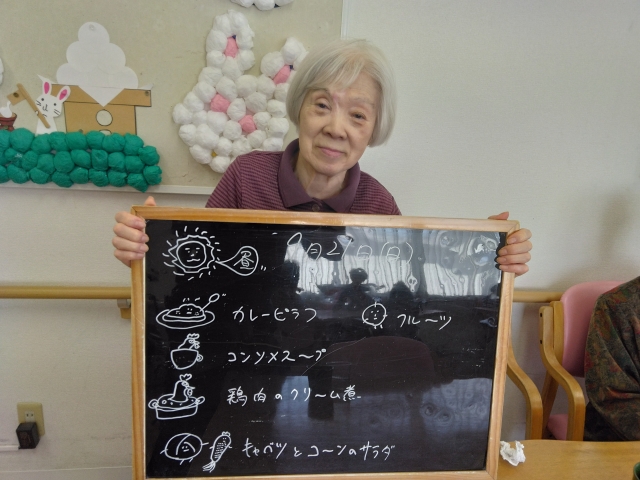 昼 9月27日(日)
カレーピラフ フルーツ
コンソメスープ
鶏肉のクリーム煮
キャベツとコーンのサラダ